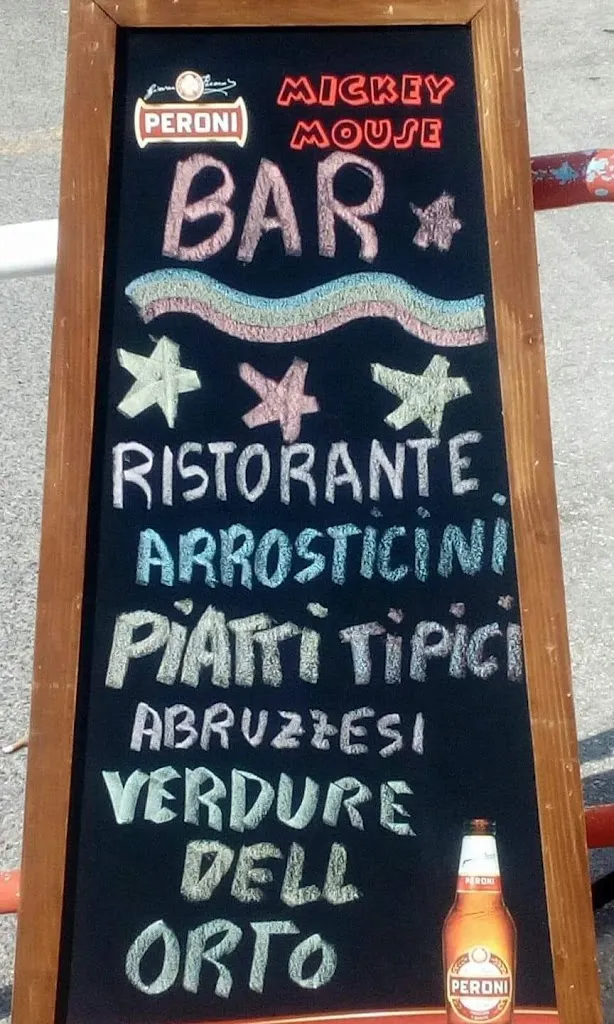 PERONI
MICKEY
MOUSE
BAR
RISTORANTE
ARROSTICINI
PIATTI TIPICI
ABRUZZESI
VERDURE
DELL
ORTO
PERONI
PERONI